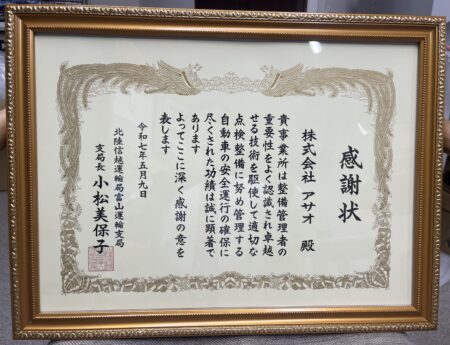 感謝状
株式会社 アサオ 殿
貴事業所は整備管理者の
重要性をよく認識され卓越
せる技術を駆使して適切な
点検整備に努め管理する
自動車の安全運行の確保に
尽くされた功績は誠に顕著で
あります
よってここに深く感謝の意を
表します
令和七年五月九日
北陸信越運輸局富山運輸支局
支局長 小松美保子